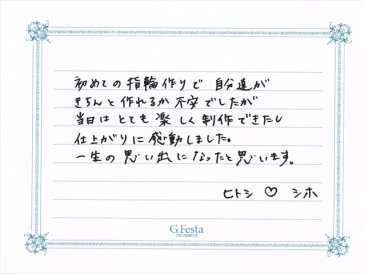 初めての指輪作りで 自分達が
きちんと作れるか不安でしたが
当日は とても 楽しく制作できたし
仕上がりに感動しました。
一生の思い出になったと思います。
ヒトシ ♡ シホ
G.Festa